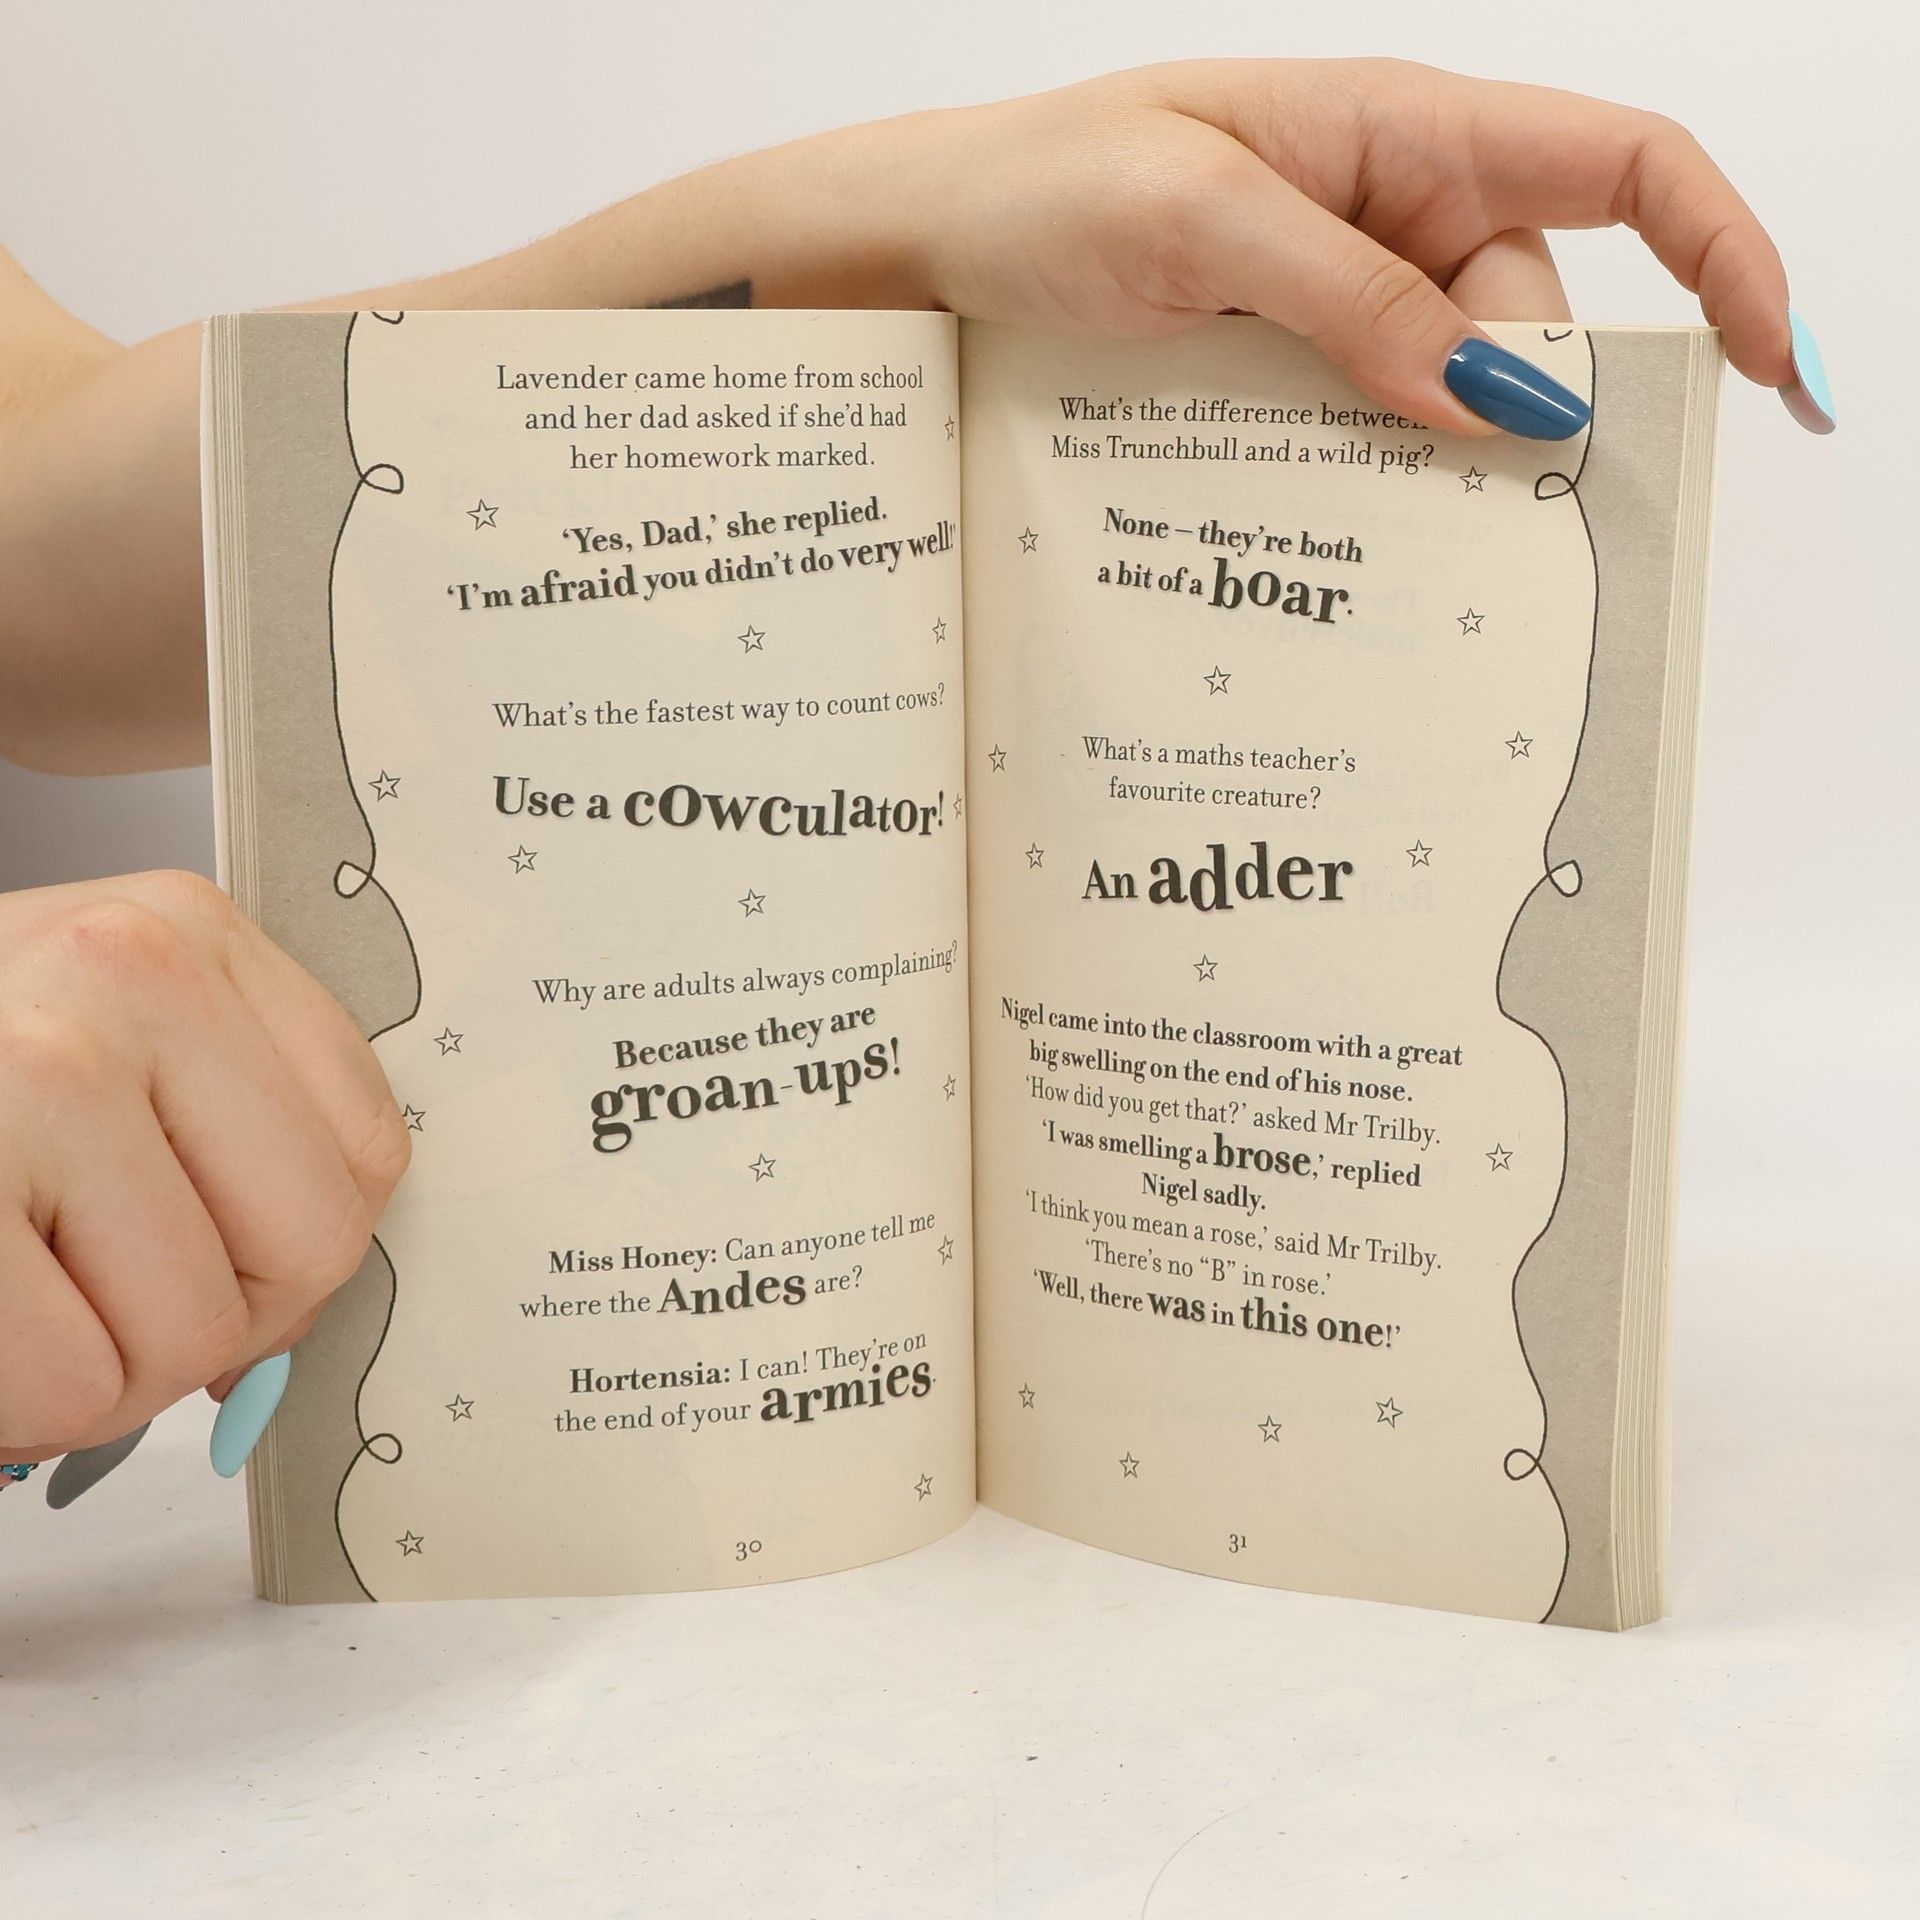 Lavender came home from school
and her dad asked if she'd had
her homework marked.
‘Yes, Dad,’ she replied.
‘I'm afraid you didn't do very well!’
What's the fastest way to count cows?
Use a cowculator!
Why are adults always complaining?
Because they are
groan-ups!
Miss Honey: Can anyone tell me
where the Andes are?
Hortensia: I can! They're on
the end of your armies.
30
What's the difference between
Miss Trunchbull and a wild pig?
None – they're both
a bit of a boar.
What's a maths teacher's
favourite creature?
An adder
Nigel came into the classroom with a great
big swelling on the end of his nose.
‘How did you get that?’ asked Mr Trilby.
‘I was smelling a brose,’ replied
Nigel sadly.
‘I think you mean a rose,’ said Mr Trilby.
‘There's no “B” in rose.’
‘Well, there was in this one!’
31